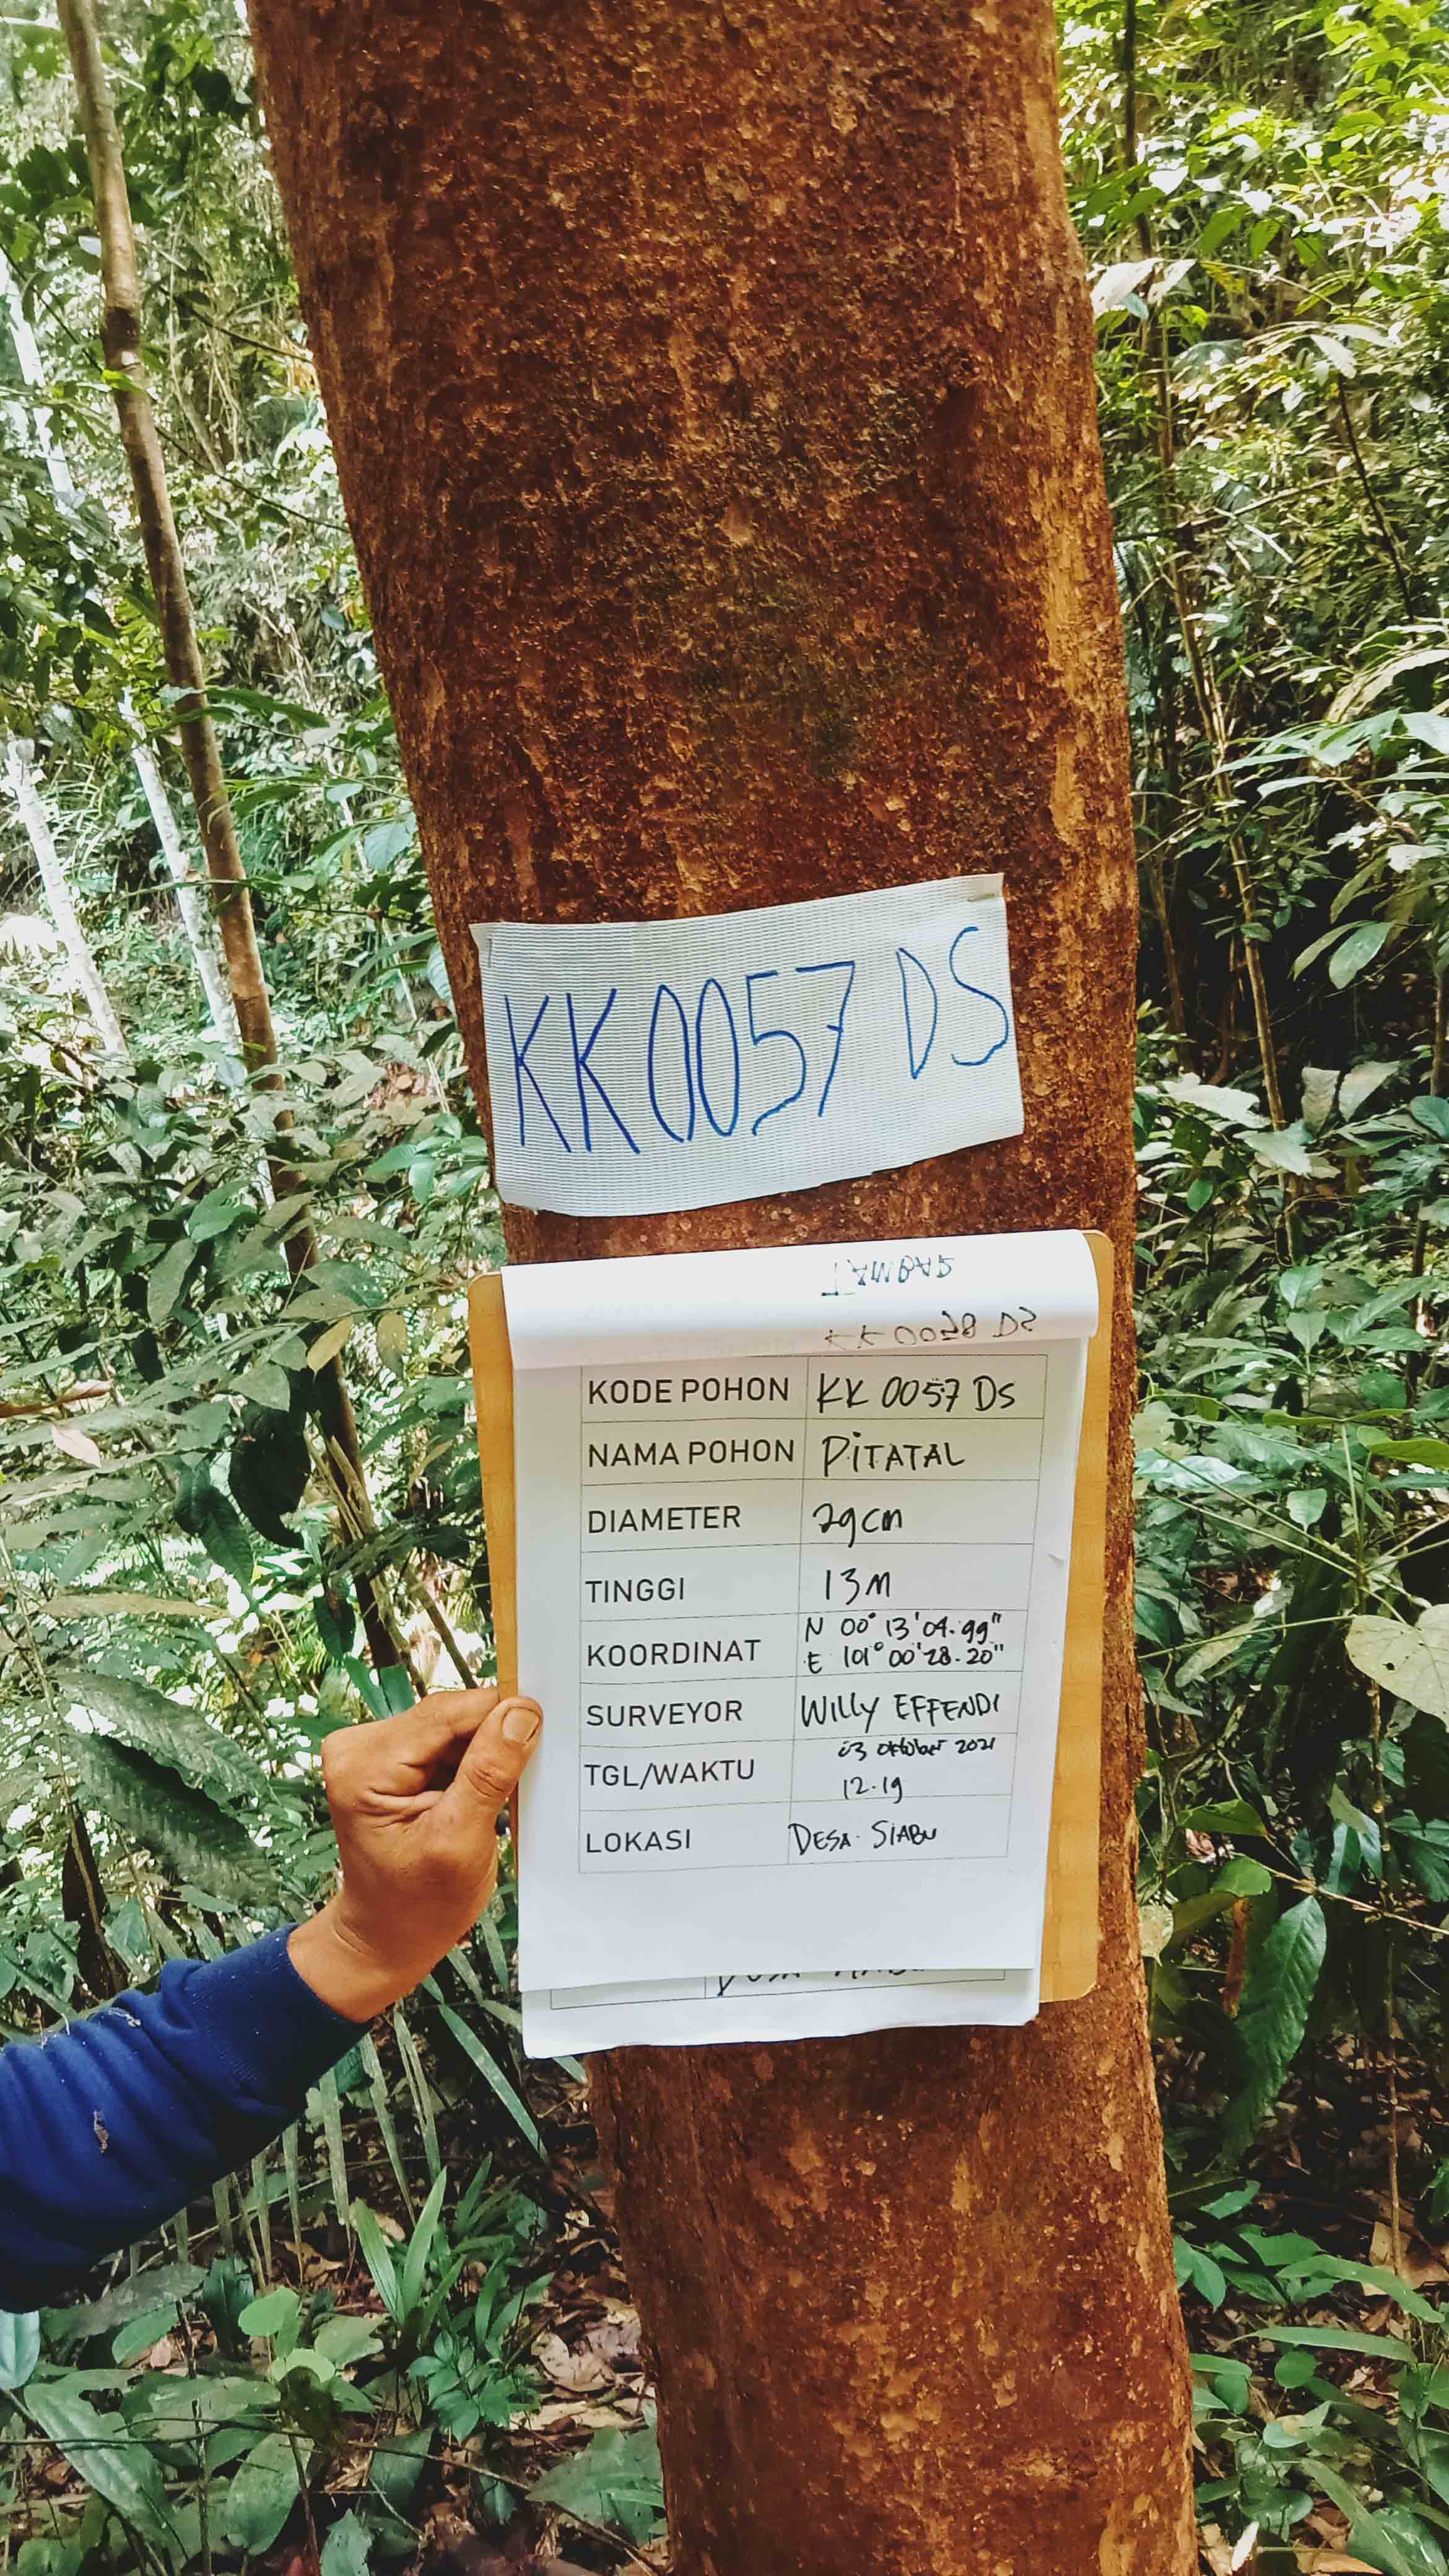 KK0057 DS
KODE POHON KK 0057 DS
NAMA POHON PITATAL
DIAMETER 29cm
TINGGI 13M
KOORDINAT N 00° 13' 04.99"
E 101° 00' 28.20"
SURVEYOR WILLY EFFENDI
TGL/WAKTU 03 Oktober 2021
12.19
LOKASI DESA SIABU